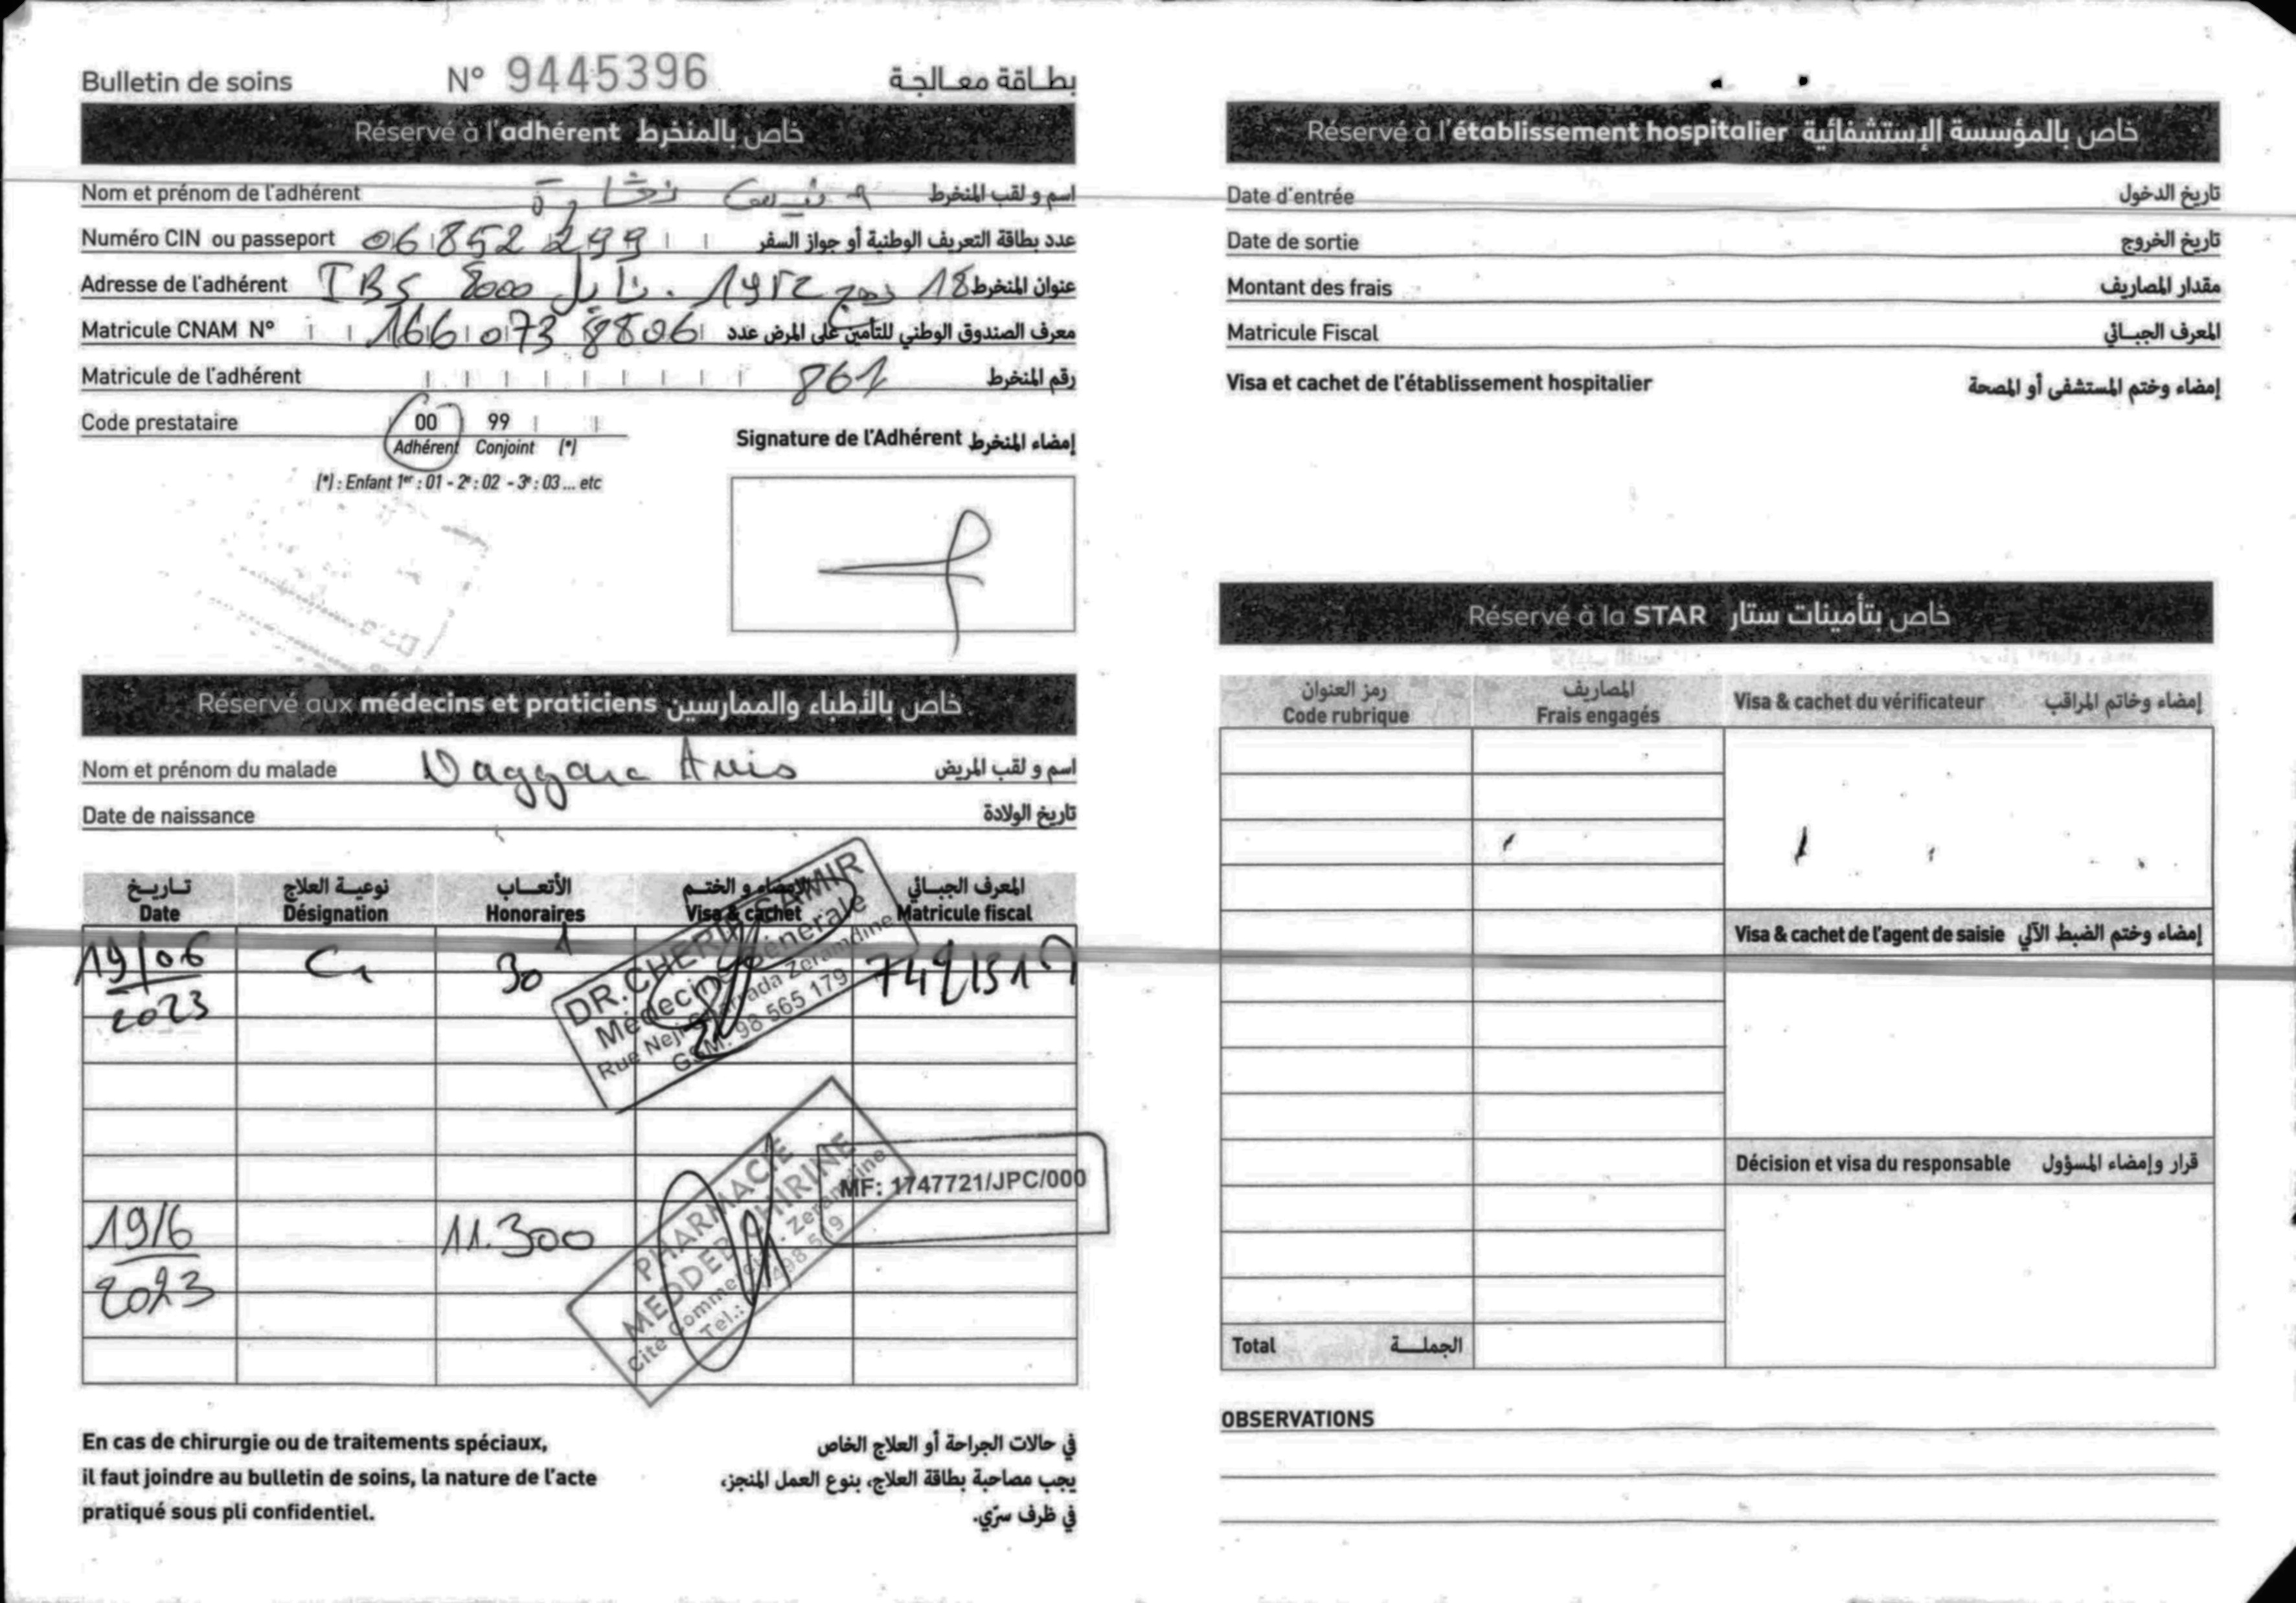 Bulletin de soins N° 9445396 بطاقة معالجة
Réservé à l'adhérent خاص بالمنخرط
Nom et prénom de l'adhérent اسم و لقب المنخرط
Numéro CIN ou passeport 06852299 عدد بطاقة التعريف الوطنية أو جواز السفر
Adresse de l'adhérent عنوان المنخرط 18 نهج 1952 . نابل 8000 IBS
Matricule CNAM N° 1661073 8806 معرف الصندوق الوطني للتأمين على المرض عدد
Matricule de l'adhérent 861 رقم المنخرط
Code prestataire 00 99
Adhérent Conjoint (*)
(*) : Enfant 1er : 01 - 2e : 02 - 3e : 03 ... etc
Signature de l'Adhérent إمضاء المنخرط
Réservé aux médecins et praticiens خاص بالأطباء والممارسين
Nom et prénom du malade Naggara Anis اسم و لقب المريض
Date de naissance تاريخ الولادة
تاريخ نوعية العلاج الأتعاب الإمضاء و الختم المعرف الجبائي
Date Désignation Honoraires Visa & cachet Matricule fiscal
19/06 2023 C1 30
DR.CHERIF SAMIR
Médecine Générale
Rue Neji Zeramdine
GSM: 98 565 179
19/6 2023 11.300
PHARMACIE
MEDDEB CHIRINE
Cité Commercial. Zeramdine
Tel.: 498 519
MF: 1747721/JPC/000
En cas de chirurgie ou de traitements spéciaux,
il faut joindre au bulletin de soins, la nature de l'acte
pratiqué sous pli confidentiel.
في حالات الجراحة أو العلاج الخاص
يجب مصاحبة بطاقة العلاج، بنوع العمل المنجز،
في ظرف سرّي.
Réservé à l'établissement hospitalier خاص بالمؤسسة الإستشفائية
Date d'entrée تاريخ الدخول
Date de sortie تاريخ الخروج
Montant des frais مقدار المصاريف
Matricule Fiscal المعرف الجبائي
Visa et cachet de l'établissement hospitalier إمضاء وختم المستشفى أو المصحة
Réservé à la STAR خاص بتأمينات ستار
رمز العنوان المصاريف
Code rubrique Frais engagés Visa & cachet du vérificateur إمضاء وخاتم المراقب
Visa & cachet de l'agent de saisie إمضاء وختم الضبط الآلي
Décision et visa du responsable قرار وإمضاء المسؤول
Total الجملة
OBSERVATIONS